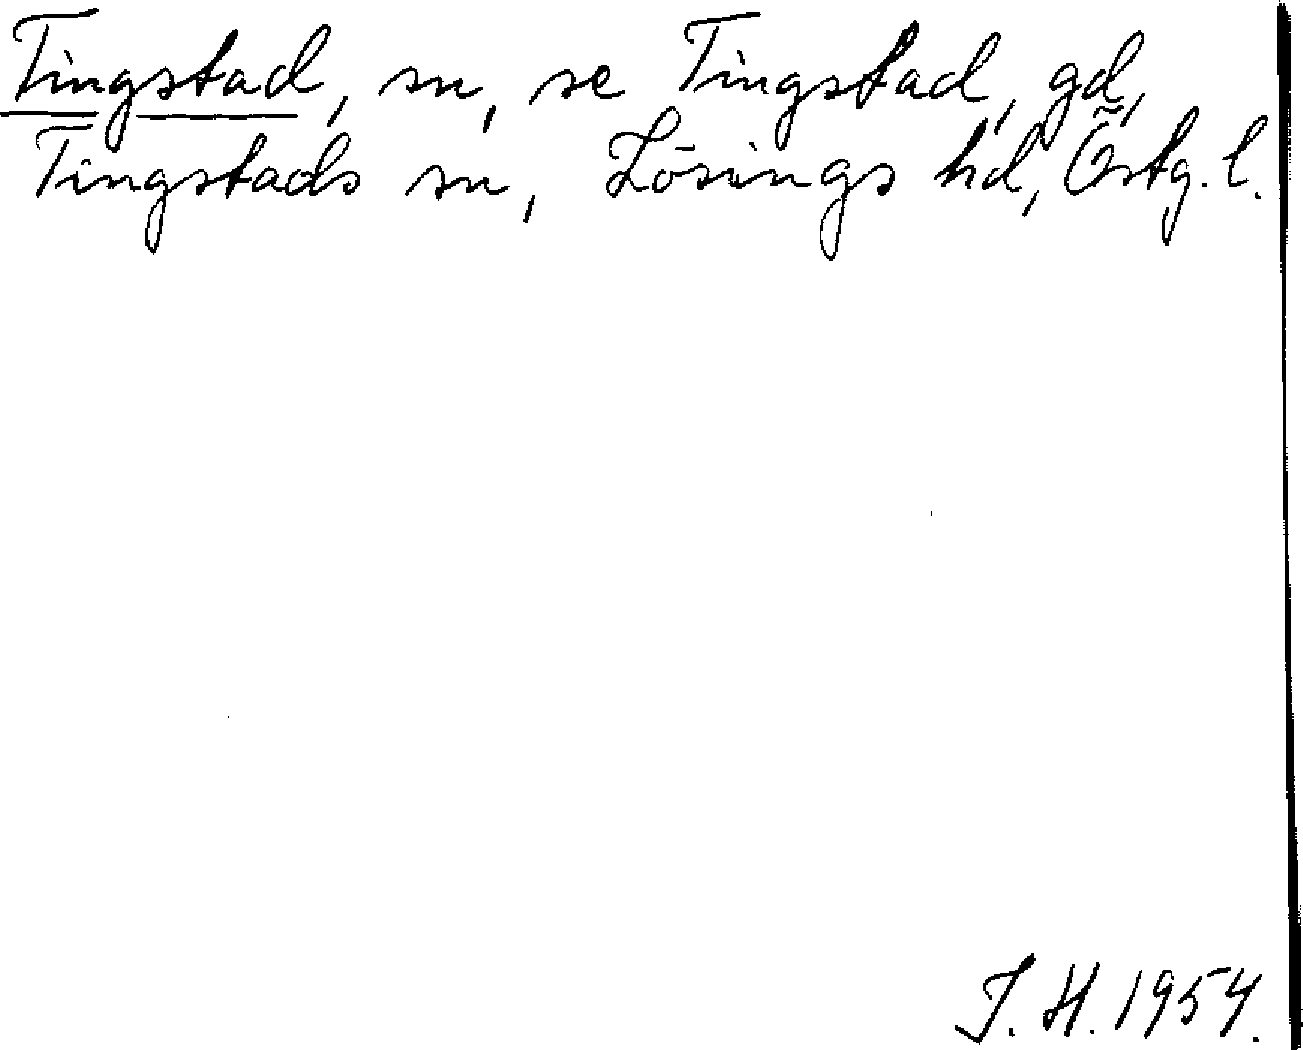 Tingstad, sn, se Tingstad, gd,
Tingstads sn, Lösings hd, Östg. l.
J. H. 1954.